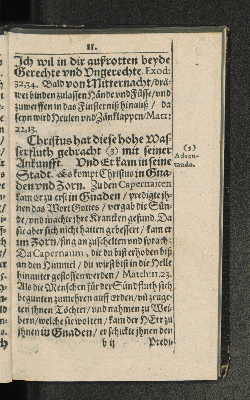 II.
Ich wil in dir außrotten beyde
Gerechte vnd Vngerechte. Exod:
32.34. Bald von Mitternacht/
wei binden zulassen Hände vnd Füsse/ vnd
zuwerffen in das Finsterniß hinauß / da
seyn wird Heulen vnd Zänklappen/ Matt:
22,13.
Christus hat diese hohe Was-
serfluth gebracht (3) mit seiner
Ankunfft. Vnd Er kam in seine
Stadt. Es kompt Christus in Gna-
den vnd Zorn. Zu den Capernaiten
kam Er zu erst in Gnaden / predigte jh-
nen das Wort Gottes / vergab die Sün-
de/ vnd machte jhre Krancken gesund. Da
sie aber sich nicht hatten gebessert / kam er
im Zorn/ fing an zuschelten vnd sprach:
Du Capernaum, die du bist erhoben biß
an den Himmel / du wirst biß in die Helle
hinunter gestossen werden / Matth:11.23.
Als die Menschen für der Sündfluth sich
begunten zumehren auff erden/ vnd zeuge-
ten jhnen Töchter/ vnd nahmen zu Wei-
bern/ welche sie wolten / kam der HErr zu
jhnen in Gnaden/ er schickte jhnen den
b ij
Predi-
(3)
Adven-
tando.